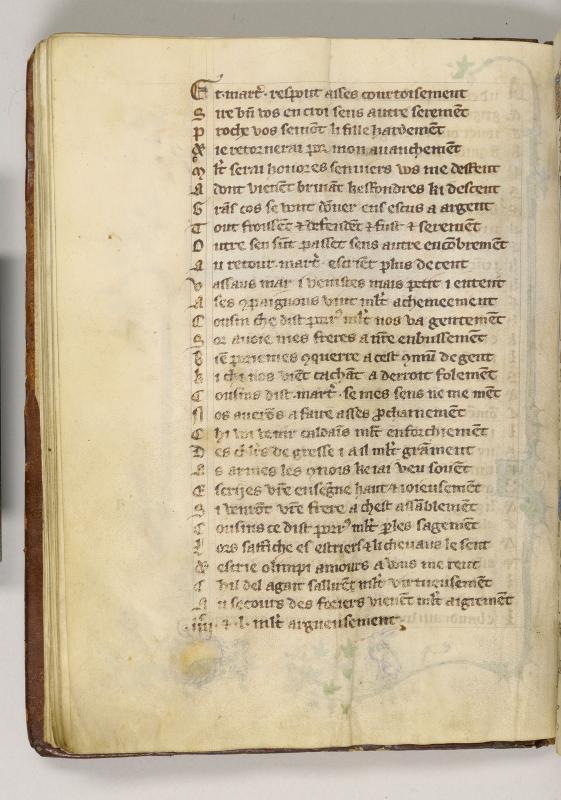 Et·mart̄·respont asses courtoisement
Sire bn̄ vos en croi sens autre seremēt
proche vos seruōt li fille hardemēt
& ie retornerai por mon auanchemēt
Ml̄t serai honores senuiers vos me deffent
Adont vienēt bruiāt kesfondres ki descent
Grās cos se vont dōner ens escus a argent
Tout froissēt & desfendēt & fust & serement
Outre sen sūt passet sens autre encōbremēt
Au retour·mart̄·escriēt plus de cent
vassaus mar i venistes mais petit i entent
Ases ꝯpaignons vint ml̄t achemeement
Cousin che dist porrꝰ ml̄t nos va gentemēt
Sor auoie mes freres a n̄re enbussement
biē poriemes ꝯquerre a cest ꝯmū de gent
ki chi nos viēt cachāt a derroit folemēt
Cousins dist·mart̄·se mes sens ne me mēt
Nos auerōs a faire asses ꝓchainemēt
Chi voi venir caldaīs ml̄t enforchiement
Des de gresse i a il ml̄t grāment
As armes les ꝯnois ke iai veu souēt
Escrijes vr̄e enseg̅ne haut & ioieusemēt
Si venrōt vr̄e frere a chest assāblemēt
Cousins ce dist porrꝰ ml̄t ꝑles sagemēt
Lors saffiche es estriers & li cheuaus le sent
& escrie olimpi amours a vous me rent
Chil del agait sallirēt ml̄t vertueusemēt
Au secours des foriers vienēt ml̄t aigremēt
·iiij·&·l·ml̄t argueusement